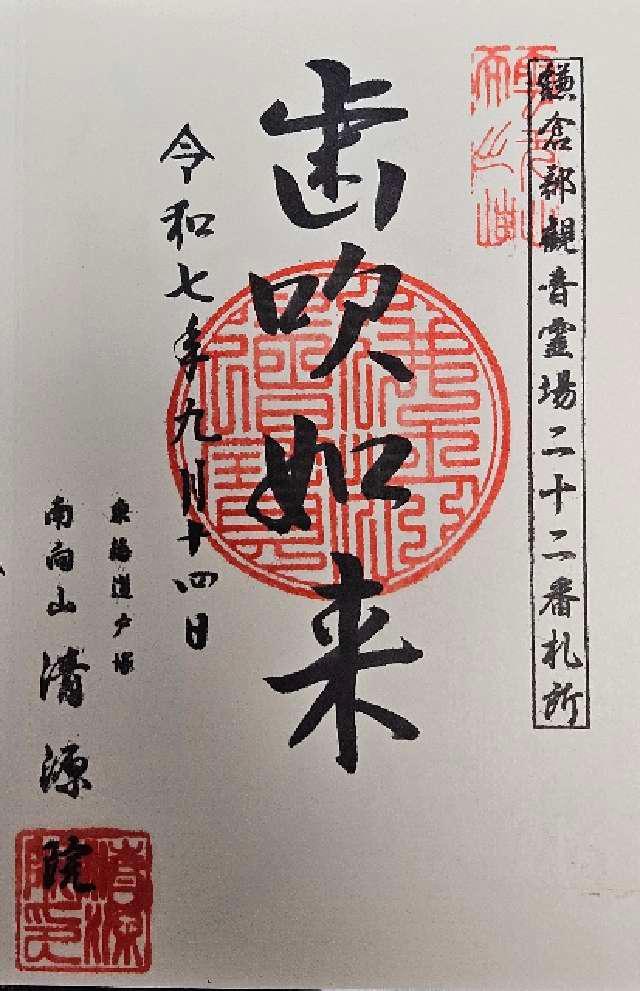 鎌倉郡観音霊場二十二番札所
歯吹如来
令和七年九月十四日
東海道戸塚
南向山 清源院
清源院印